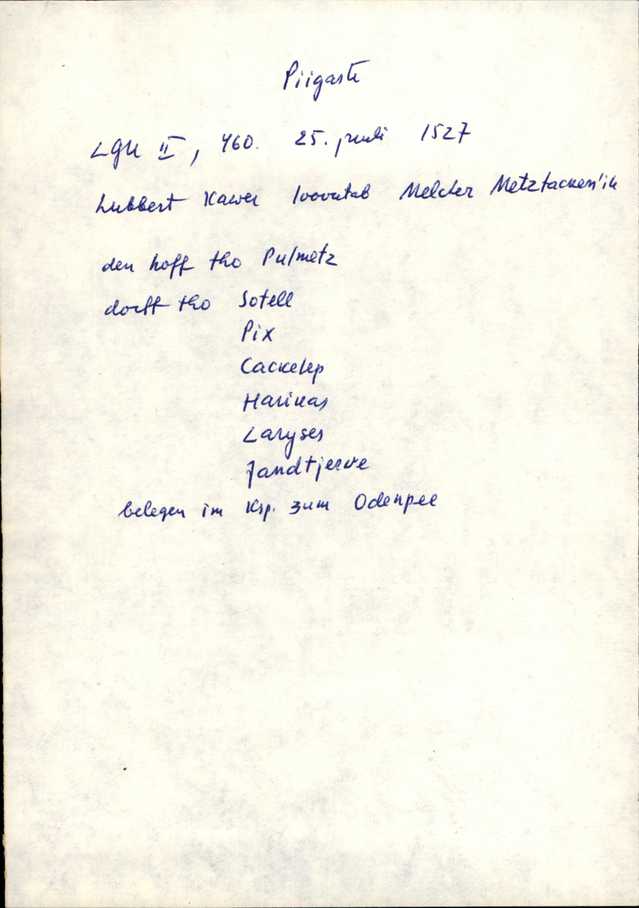 Piigaste
LGU II, 460. 25. juuli 1527
Lubbert Kawer loovutab Melcher Metztacken'ile
den hoff tho Pulmetz
dorff tho Sotell
Pix
Cackelep
Harikas
Laryses
Jandtjerve
belegen im Ksp. zum Odenpee